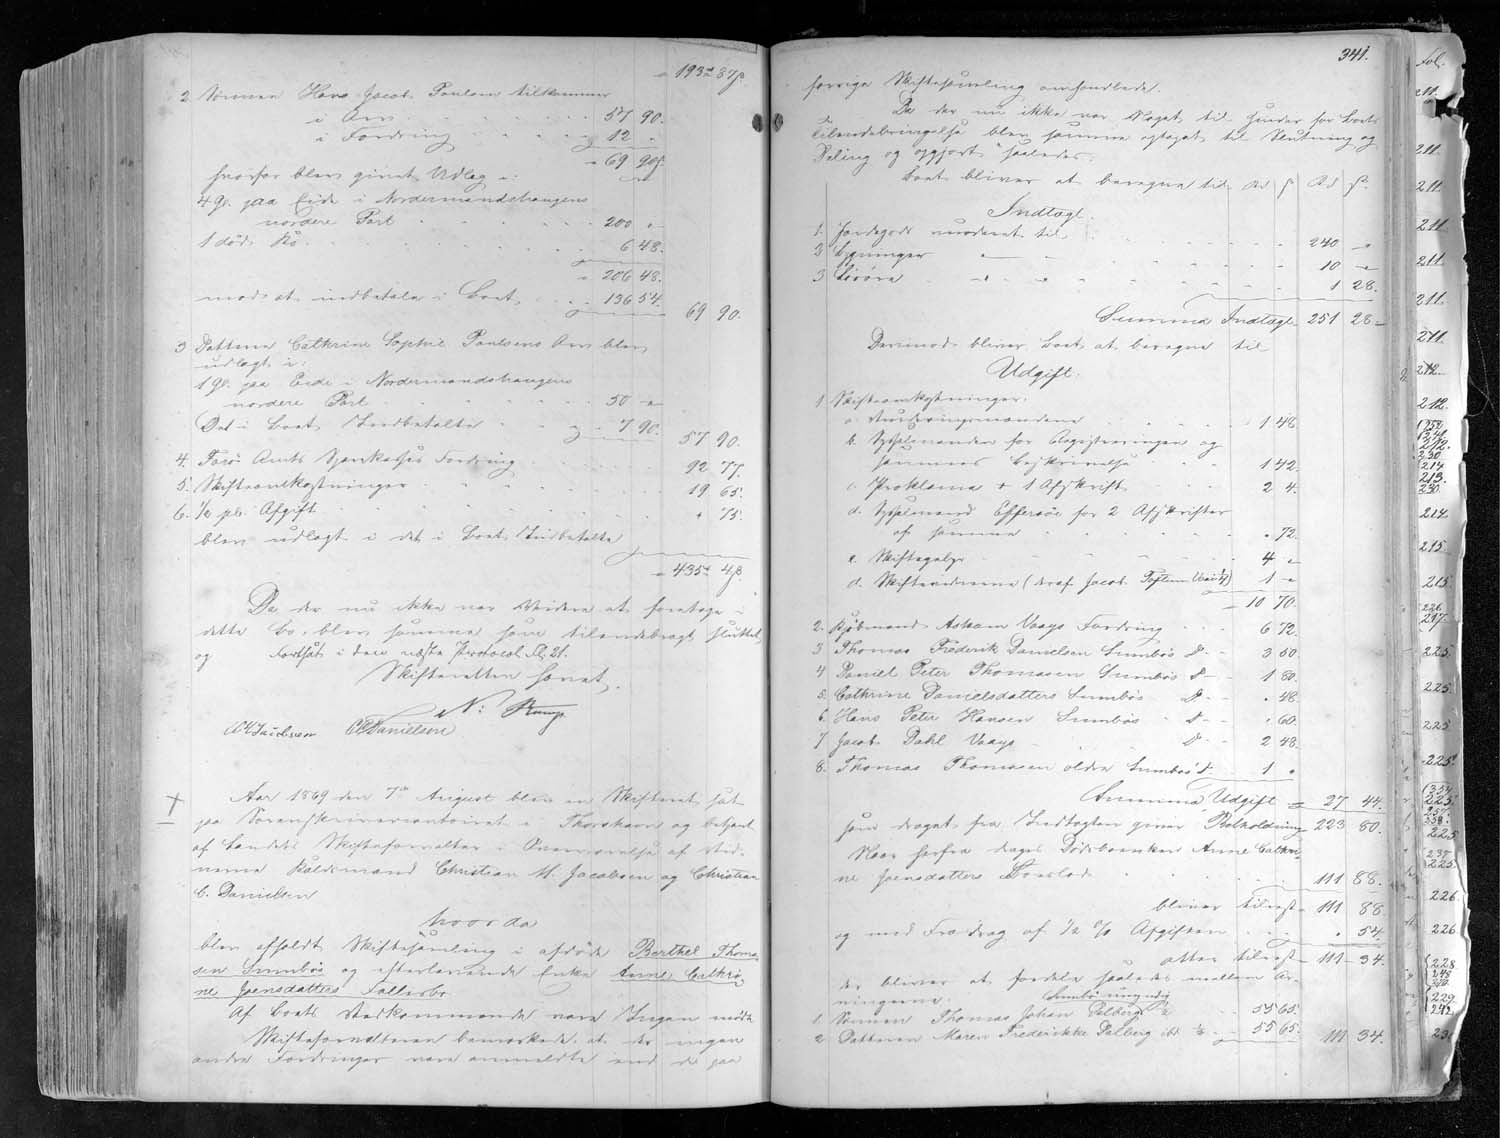 " 193 rd 87 ß.
2 Sønnen Hans Jacob Poulsen tilkommer
i Arv 57 90.
i Fordring 12 "
" 69 90 ß.
hvorfor blev givet Udlæg i:
4 Gl. paa Eide i Nordermandshaugens
nordere Part 200 "
1 død Ko 6 48.
" 206 48.
mod at indbetale i Boet 136 54.
69 90.
3 Datteren Cathrine Sophie Poulsens Arv blev
udlagt i:
1 Gl. paa Eide i Nordermandshaugens
nordere Part 50 "
Det i Boet Indbetalte 7 90.
57 90.
4. Færø Amts Sparekasses Fordring 92 77.
5. Skifteomkostninger 19 65.
6. ½ pCt. Afgift " 75.
blev udlagt i det i Boet Indbetalte
" 435 rd 4 ß.
Da der nu ikke var Videre at foretage i
dette Bo, blev samme som tilendebragt sluttet
og Fortsat i den næste Protocol Fl. 21.
Skifteretten hævet.
N: Rump
CM Jacobsen CC Danielsen
Aar 1869 den 7de August blev en Skifteret sat
paa Sorenskrivercontoiret i Thorshavn og betjent
af Landets Skifteforvalter i Overværelse af Vid-
nerne Politimand Christian M. Jacobsen og Christian
C. Danielsen
hvorda
blev afholdt Skiftesamling i afdøde Berthel Thoma-
sen Sumbøs og efterlevende Enke Anne Cathri-
ne Joensdatters Fællesbo.
Af Boets Vedkommende vare Ingen mødte
Skifteforvalteren bemærkede, at der ingen
andre Fordringer vare anmeldte end de paa
341.
forrige Skiftesamling omhandlede.
Da der nu ikke var Noget til Hinder for Boets
Tilendebringelse blev samme optaget til Slutning og
Deling og opgjort saaledes:
Boet bliver at beregne til Rd ß Rd ß.
Indtægt.
1. Jordegods vurderet til 240 "
2 Bygninger " 10 "
3 Løsøre " " 1 28.
Summa Indtægt 251 28
Derimod bliver Boet at beregne til
Udgift.
1. Skifteomkostninger:
a. Vurderingsmændene 1 48
b. Sysselmanden for Registreringen og
sammes Beskrivelse 1 42.
c. Proklama + 1 Afskrift 2 4.
d. Sysselmand Effersøe for 2 Afskrifter
af samme " 72.
e. Skiftegebyr 4 "
d. Skiftevidnerne (deraf Jacob 1 "
10 70.
2. Kjøbmand Vaags Fordring 6 72.
3 Thomas Frederik Danielsen Sumbøs Do 3 50.
4 Daniel Peter Thomasen Sumbøs Do 1 80.
5. Cathrine Danielsdatters Sumbøs " 48
6. Hans Peter Hansen Sumbøs Do " 60.
7 Jacob Dahl Vaags Do 2 48.
8. Thomas Thomasen ældre Sumbøs Do 1 "
Summa Udgift = 27 44.
som draget fra Indtægten giver Beholdning 223 80.
Naar herfra drages Dødsboenken Anne Cathri-
ne Joensdatters Boeslod 111 88.
bliver tilrest 111 88.
og med Fradrag af ½ % Afgiften " 54.
atter tilrest 111 34.
der bliver at fordele saaledes mellem Ar-
vingerne:
Sumbø umyndig
1. Sønnen Thomas Johan Palberg 55 65.
2 Datteren Maren Frederikke Palberg 55 65. 111 34.
Fol.
211.
211.
211.
211.
211.
211.
211.
212
212.
212.
230
214
213.
230
214.
215.
215.
226
217.
225.
225.
225
225.
225.
225
225.
226.
226.
228
229
242.